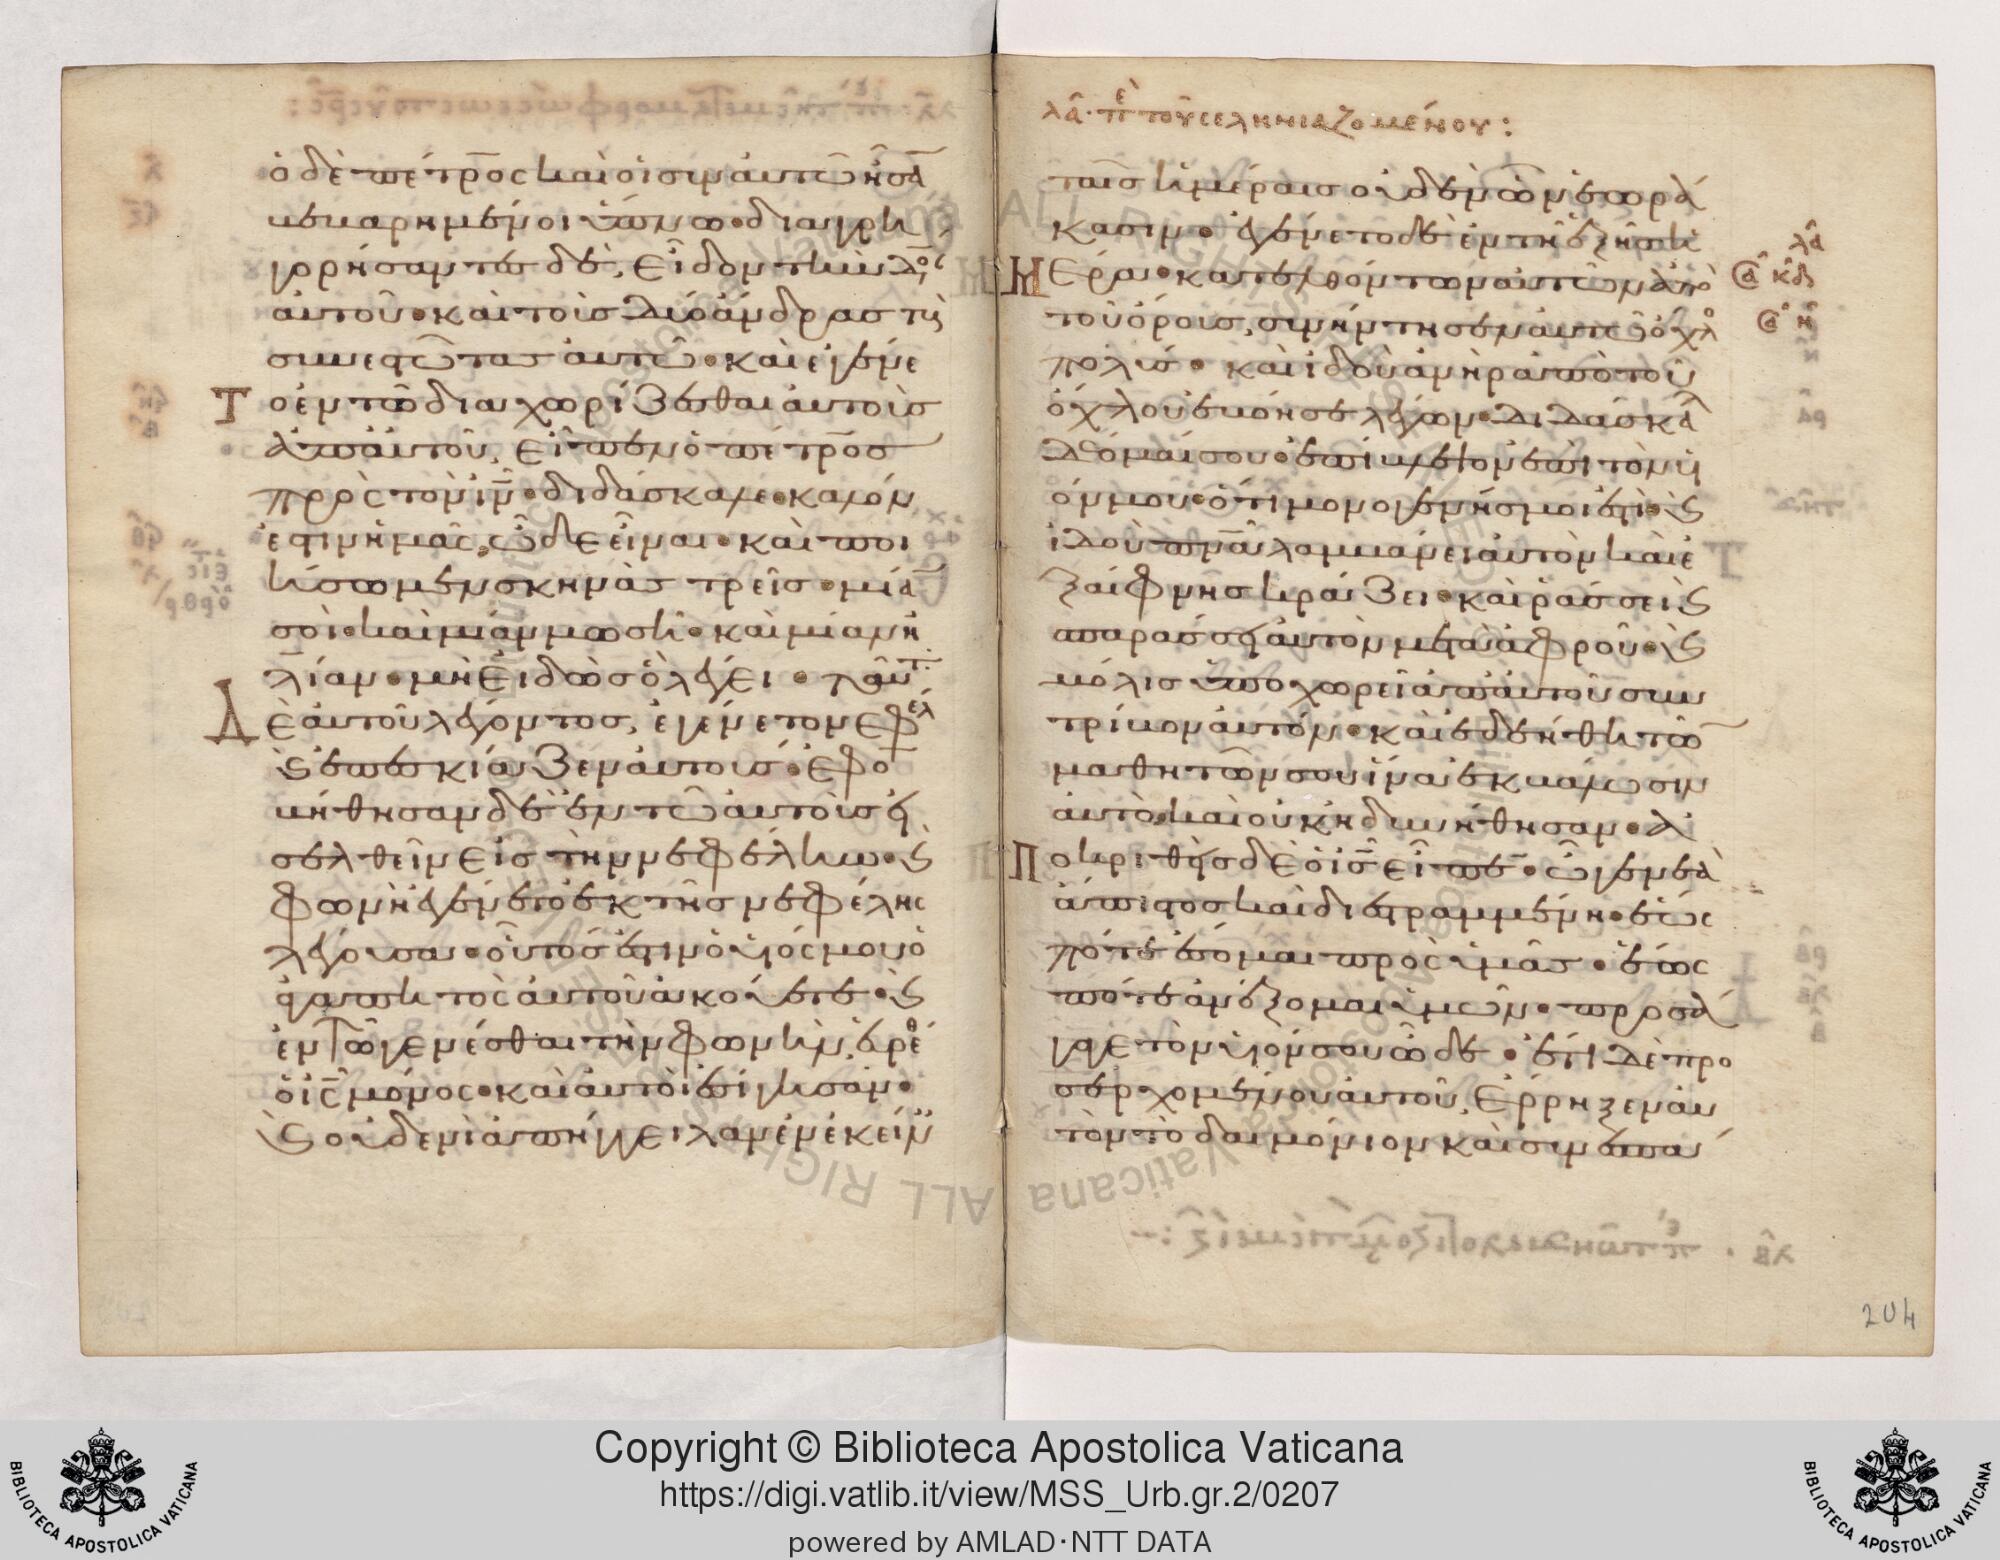 ὁ δὲ πέτρος καὶ οἱ σὺν αὐτῶ ἦσᾱ
βεβαρημένοι ὕπνω· διαγρη
γορήσαντες δὲ, εἶδον τὴν δόξ
αὐτοῦ· καὶ τοὺς δύο ἄνδρας τοὺς
συνεστῶτας αὐτῶ· καὶ ἐγένε
Το ἐν τῶ διαχωρίζεσθαι αὐτοὺς
ἀπ' αὐτοῦ, εἶπεν ὁ πέτρος
πρὸς τὸν ιν̅· διδάσκαλε· καλόν
ἐστιν ἡμᾶς ὧδε εἶναι· καὶ ποι
ήσωμεν σκηνὰς τρεῖς· μίᾱ
σοὶ· καὶ μίαν μωσῆ· καὶ μίαν ἠ
λίαν· μὴ εἰδὼς ὃ λέγει· ταῦτ
Δὲ αὐτοῦ λέγοντος, ἐγένετο νεφελ
καὶ ἐπεσκίαζεν αὐτούς· ἐφο
βήθησαν δὲ ἐν τῶ αὐτοὺς εἰ
σελθεῖν εἰς τὴν νεφέλην· καὶ
φωνὴ ἐγένετο ἐκ τῆς νεφέλης
λέγουσα· οὗτός ἐστιν ὁ υἱός μου ὁ
ἀγαπητὸς αὐτοῦ ἀκούετε· καὶ
ἐν τῶ γενέσθαι τὴν φωνὴν, εὑρέθ
ὁ ις̅ μόνος· καὶ αὐτοὶ ἐσίγησαν·
καὶ οὐδενὶ ἀπήγγειλαν ἐν ἐκείν
λα· πε τοῦ σεληνιαζομένου:
ταῖς ἡμέραις οὐδὲν ὧν ἑωρά
κασιν· ἐγένετο δὲ ἐν τῆ ἑξῆς ἡ
Μέρα· κατελθόντων αὐτῶν ἀπὸ
τοῦ ὄρους, συνήντησεν αὐτῶ ὄχλο
πολύς· καὶ ἰδοὺ ἀνὴρ ἀπὸ τοῦ
ὄχλου ἐβόησε λέγων· διδάσκα
δέομαί σου· ἐπίβλεψον ἐπὶ τὸν υἱ
όν μου· ὅτι μονογενής μοι ἐστὶ· καὶ
ἰδοὺ πνᾱ λαμβάνει αὐτὸν καὶ ἐ
ξαίφνης κράζει· καὶ ῥάσσει καὶ
σπαράσσει αὐτὸν μετὰ ἀφροῦ· καὶ
μόλις ὑποχωρεῖ ἀπ' αὐτοῦ συν
τρίβον αὐτόν· καὶ ἐδεήθην τῶ
μαθητῶν σου ἵνα ἐκβάλωσιν
αὐτὸ· καὶ οὐκ ἠδυνήθησαν· ἀ
Ποκριθεὶς δὲ ὁ ις̅ εἶπεν· ὦ γενεὰ
ἄπιστος καὶ διεστραμμένη· ἕως
πότε ἔσομαι πρὸς ὑμᾶς· ἕως
πότε ἀνέξομαι ὑμῶν· προσά
γαγε τὸν υἱόν σου ὧδε· ἔτι δὲ προ
σερχομένου αὐτοῦ, ἔρρηξεν αὐ
τὸν τὸ δαιμόνιον καὶ συνεσπά
λα
κδ
η
204
Copyright © Biblioteca Apostolica Vaticana
https://digi.vatlib.it/view/MSS_Urb.gr.2/0207
powered by AMLAD·NTT DATA
BIBLIOTECA APOSTOLICA VATICANA
BIBLIOTECA APOSTOLICA VATICANA